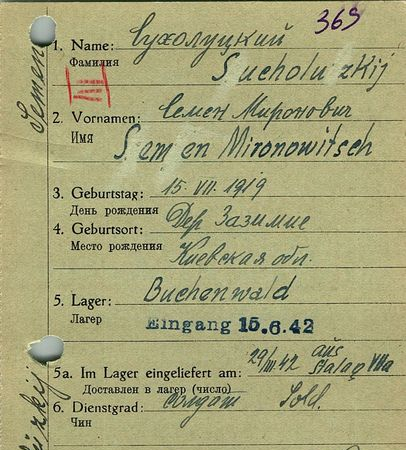 369
1. Name: Сухолуцкий
Фамилия
Sucholuzkij
III
2. Vornamen: Семен Миронович
Имя
Semen Mironowitsch
3. Geburtstag: 15. VII. 1919
День рождения
4. Geburtsort: Дер. Зазимие
Место рождения
Киевская обл.
5. Lager: Buchenwald
Лагер
Eingang 15.6.42
5a. Im Lager eingeliefert am: 29/III.42 aus Stalag VIIa
Доставлен в лагер (число)
6. Dienstgrad: солдат Sold.
Чин
Semen